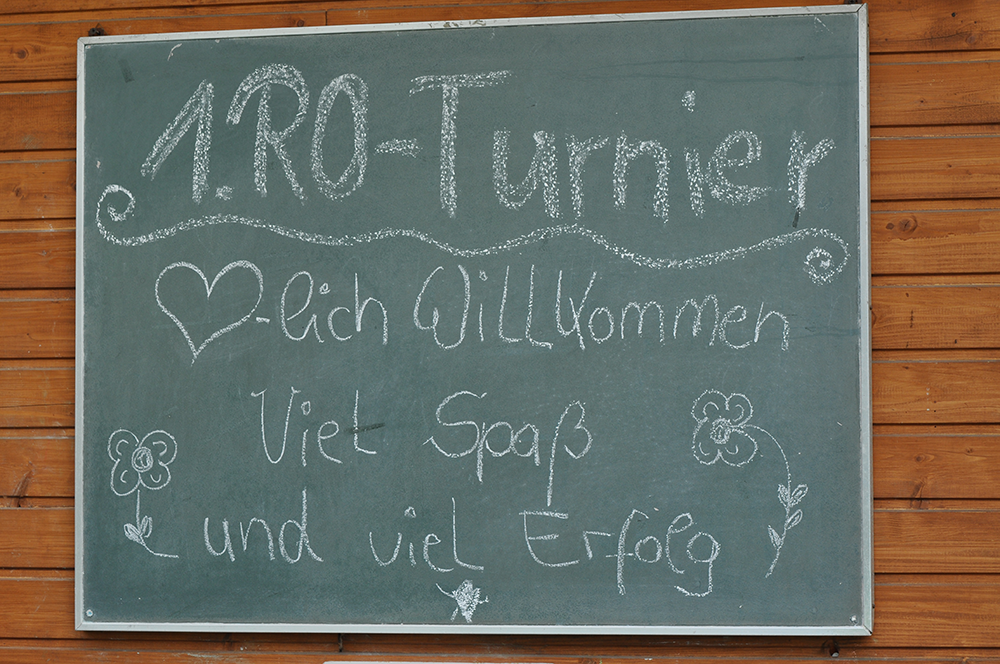 1. RO-Turnier
♥-lich Willkommen
Viel Spaß
und viel Erfolg